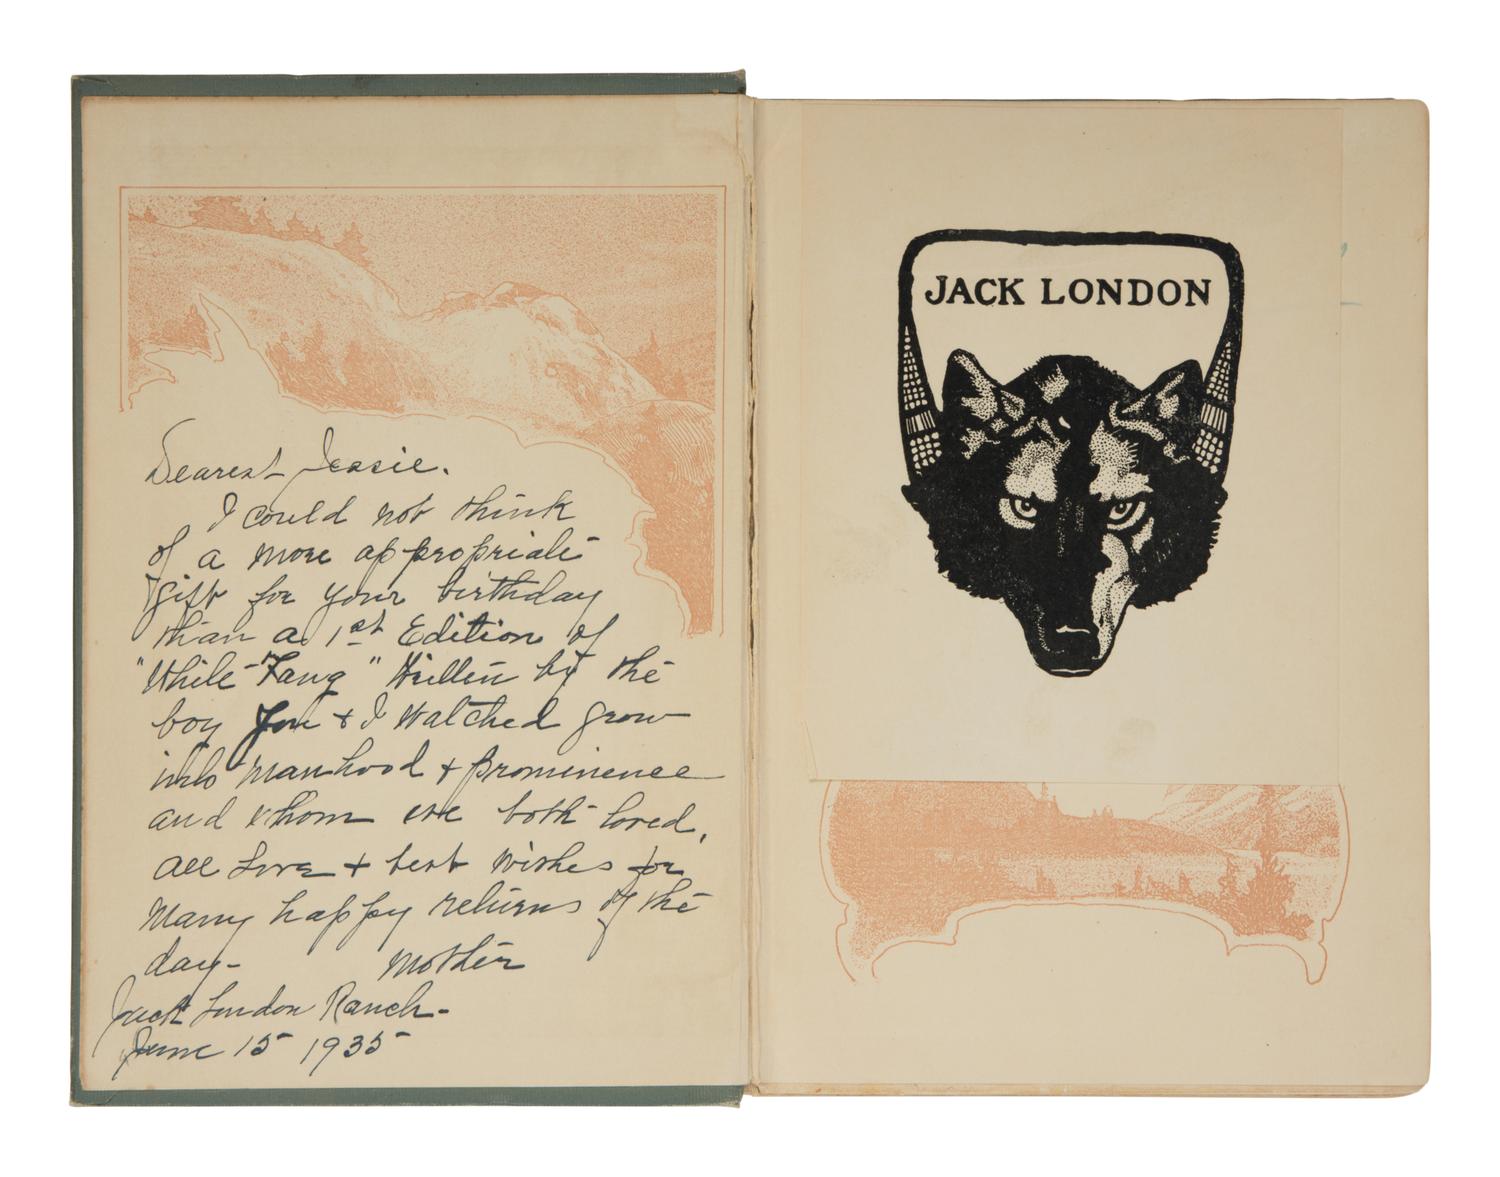 Dearest Jessie.
I could not think
of a more appropriate
gift for your birthday
than a 1st Edition of
"White Fang" Written by the
boy you + I watched grow
into manhood + prominence
and whom we both loved.
All Love + best wishes for
Many happy returns of the
day-
Mother
Jack London Ranch-
June 15 1935
JACK LONDON